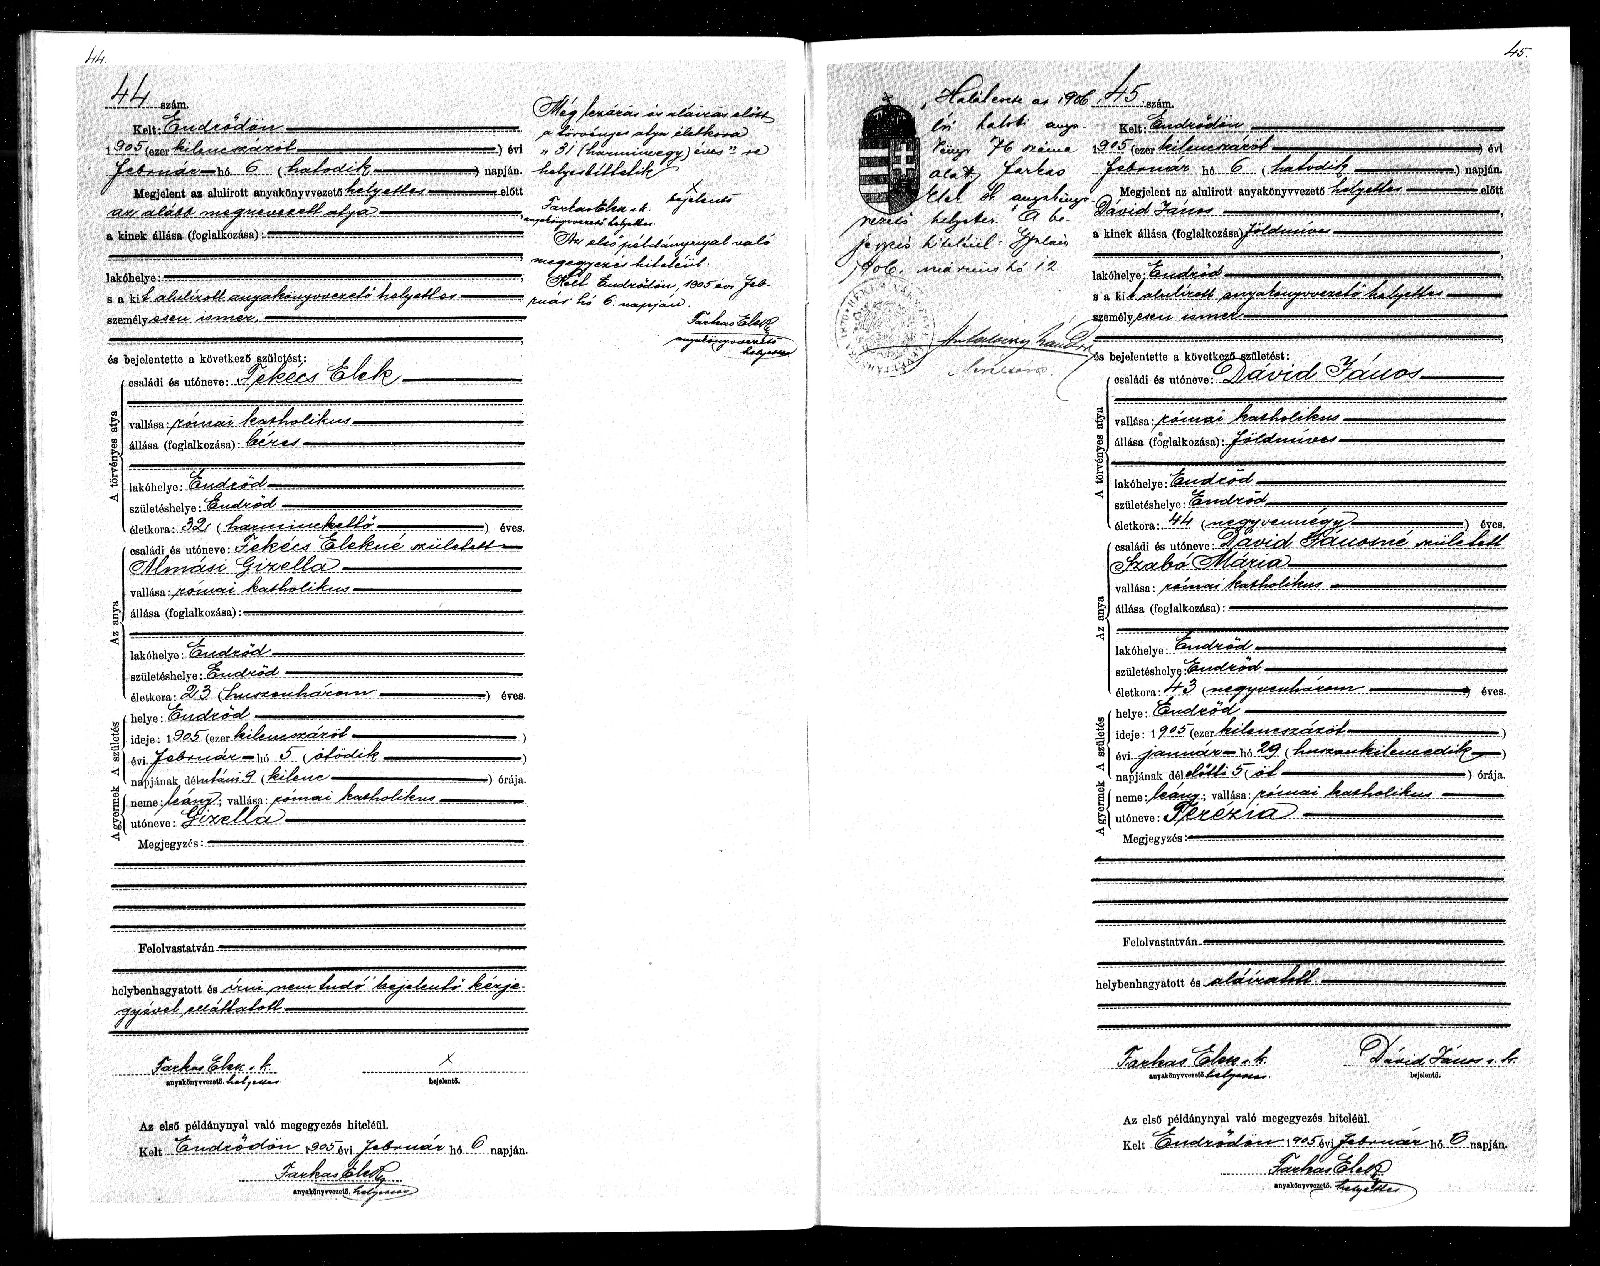 44.
44 szám.
Kelt: Endrődön
1905 (ezer kilencszázöt) évi
február hó 6 (hatodik) napján.
Megjelent az alulirott anyakönyvvezető helyettes előtt
az alább megnevezett atya
a kinek állása (foglalkozása):
lakóhelye:
s a kit alulirott anyakönyvvezető helyettes
személyesen ismer,
és bejelentette a következő születést:
A törvényes atya
családi és utóneve: Fekécs Elek
vallása: római katholikus
állása (foglalkozása): béres
lakóhelye: Endrőd
születéshelye: Endrőd
életkora: 32 (harminckettő) éves.
Az anya
családi és utóneve: Fekécs Elekné született
Almási Gizella
vallása: római katholikus
állása (foglalkozása):
lakóhelye: Endrőd
születéshelye: Endrőd
életkora: 23 (huszonhárom) éves.
A születés
helye: Endrőd
ideje: 1905 (ezer kilencszázöt)
évi február hó 5 (ötödik)
napjának délutáni 9 (kilenc) órája.
A gyermek
neme: leány; vallása: római katholikus
utóneve: Gizella
Megjegyzés:
Felolvastatván
helybenhagyatott és írni nem tudó bejelentő kézje-
gyével elláttatott
Farkas Elek s. k.
anyakönyvvezető helyettes
x
bejelentő.
Az első példánynyal való megegyezés hiteléül.
Kelt Endrődön 1905 évi február hó 6 napján.
Farkas Elek
anyakönyvvezető. helyettes
Még lezárás és aláirás előtt
a törvényes atya életkora
"31 (harmincegy) éves"-re
helyesbittetik
x
bejelentő
Farkas Elek s. k.
anyakönyvvezető helyettes
Az első példánynyal való
megegyezés hiteléül.
Kelt Endrődön, 1905 évi feb-
ruár hó 6 napján.
Farkas Elek
anyakönyvvezető
helyettes
45.
45 szám.
"Halálesete az 1906
évi halotti anya-
könyv 76 száma
alatt Farkas
Elek ak. anyakönyv-
vezető helyettes. A be-
jegyzés hiteléül: Gyulán
1906. március hó 12
Kelt: Endrődön
1905 (ezer kilencszázöt) évi
február hó 6 (hatodik) napján.
Megjelent az alulirott anyakönyvvezető helyettes előtt
Dávid János
a kinek állása (foglalkozása) földmíves
lakóhelye: Endrőd
s a kit alulirott anyakönyvvezető helyettes
személyesen ismer
és bejelentette a következő születést:
A törvényes atya
családi és utóneve: Dávid János
vallása: római katholikus
állása (foglalkozása): földmíves
lakóhelye: Endrőd
születéshelye: Endrőd
életkora: 44 (negyvennégy) éves.
Az anya
családi és utóneve: Dávid Jánosné született
Szabó Mária
vallása: római katholikus
állása (foglalkozása):
lakóhelye: Endrőd
születéshelye: Endrőd
életkora: 43 (negyvenhárom) éves.
A születés
helye: Endrőd
ideje: 1905 (ezer kilencszázöt)
évi január hó 29 (huszonkilencedik)
napjának délelőtti 5 (öt) órája.
A gyermek
neme: leány; vallása: római katholikus
utóneve: Terézia
Megjegyzés:
Felolvastatván
helybenhagyatott és aláiratott
Farkas Elek s. k.
anyakönyvvezető helyettes.
Dávid János s. k.
bejelentő.
Az első példánynyal való megegyezés hiteléül.
Kelt Endrődön 1905 évi február hó 6 napján.
Farkas Elek
anyakönyvvezető. helyettes